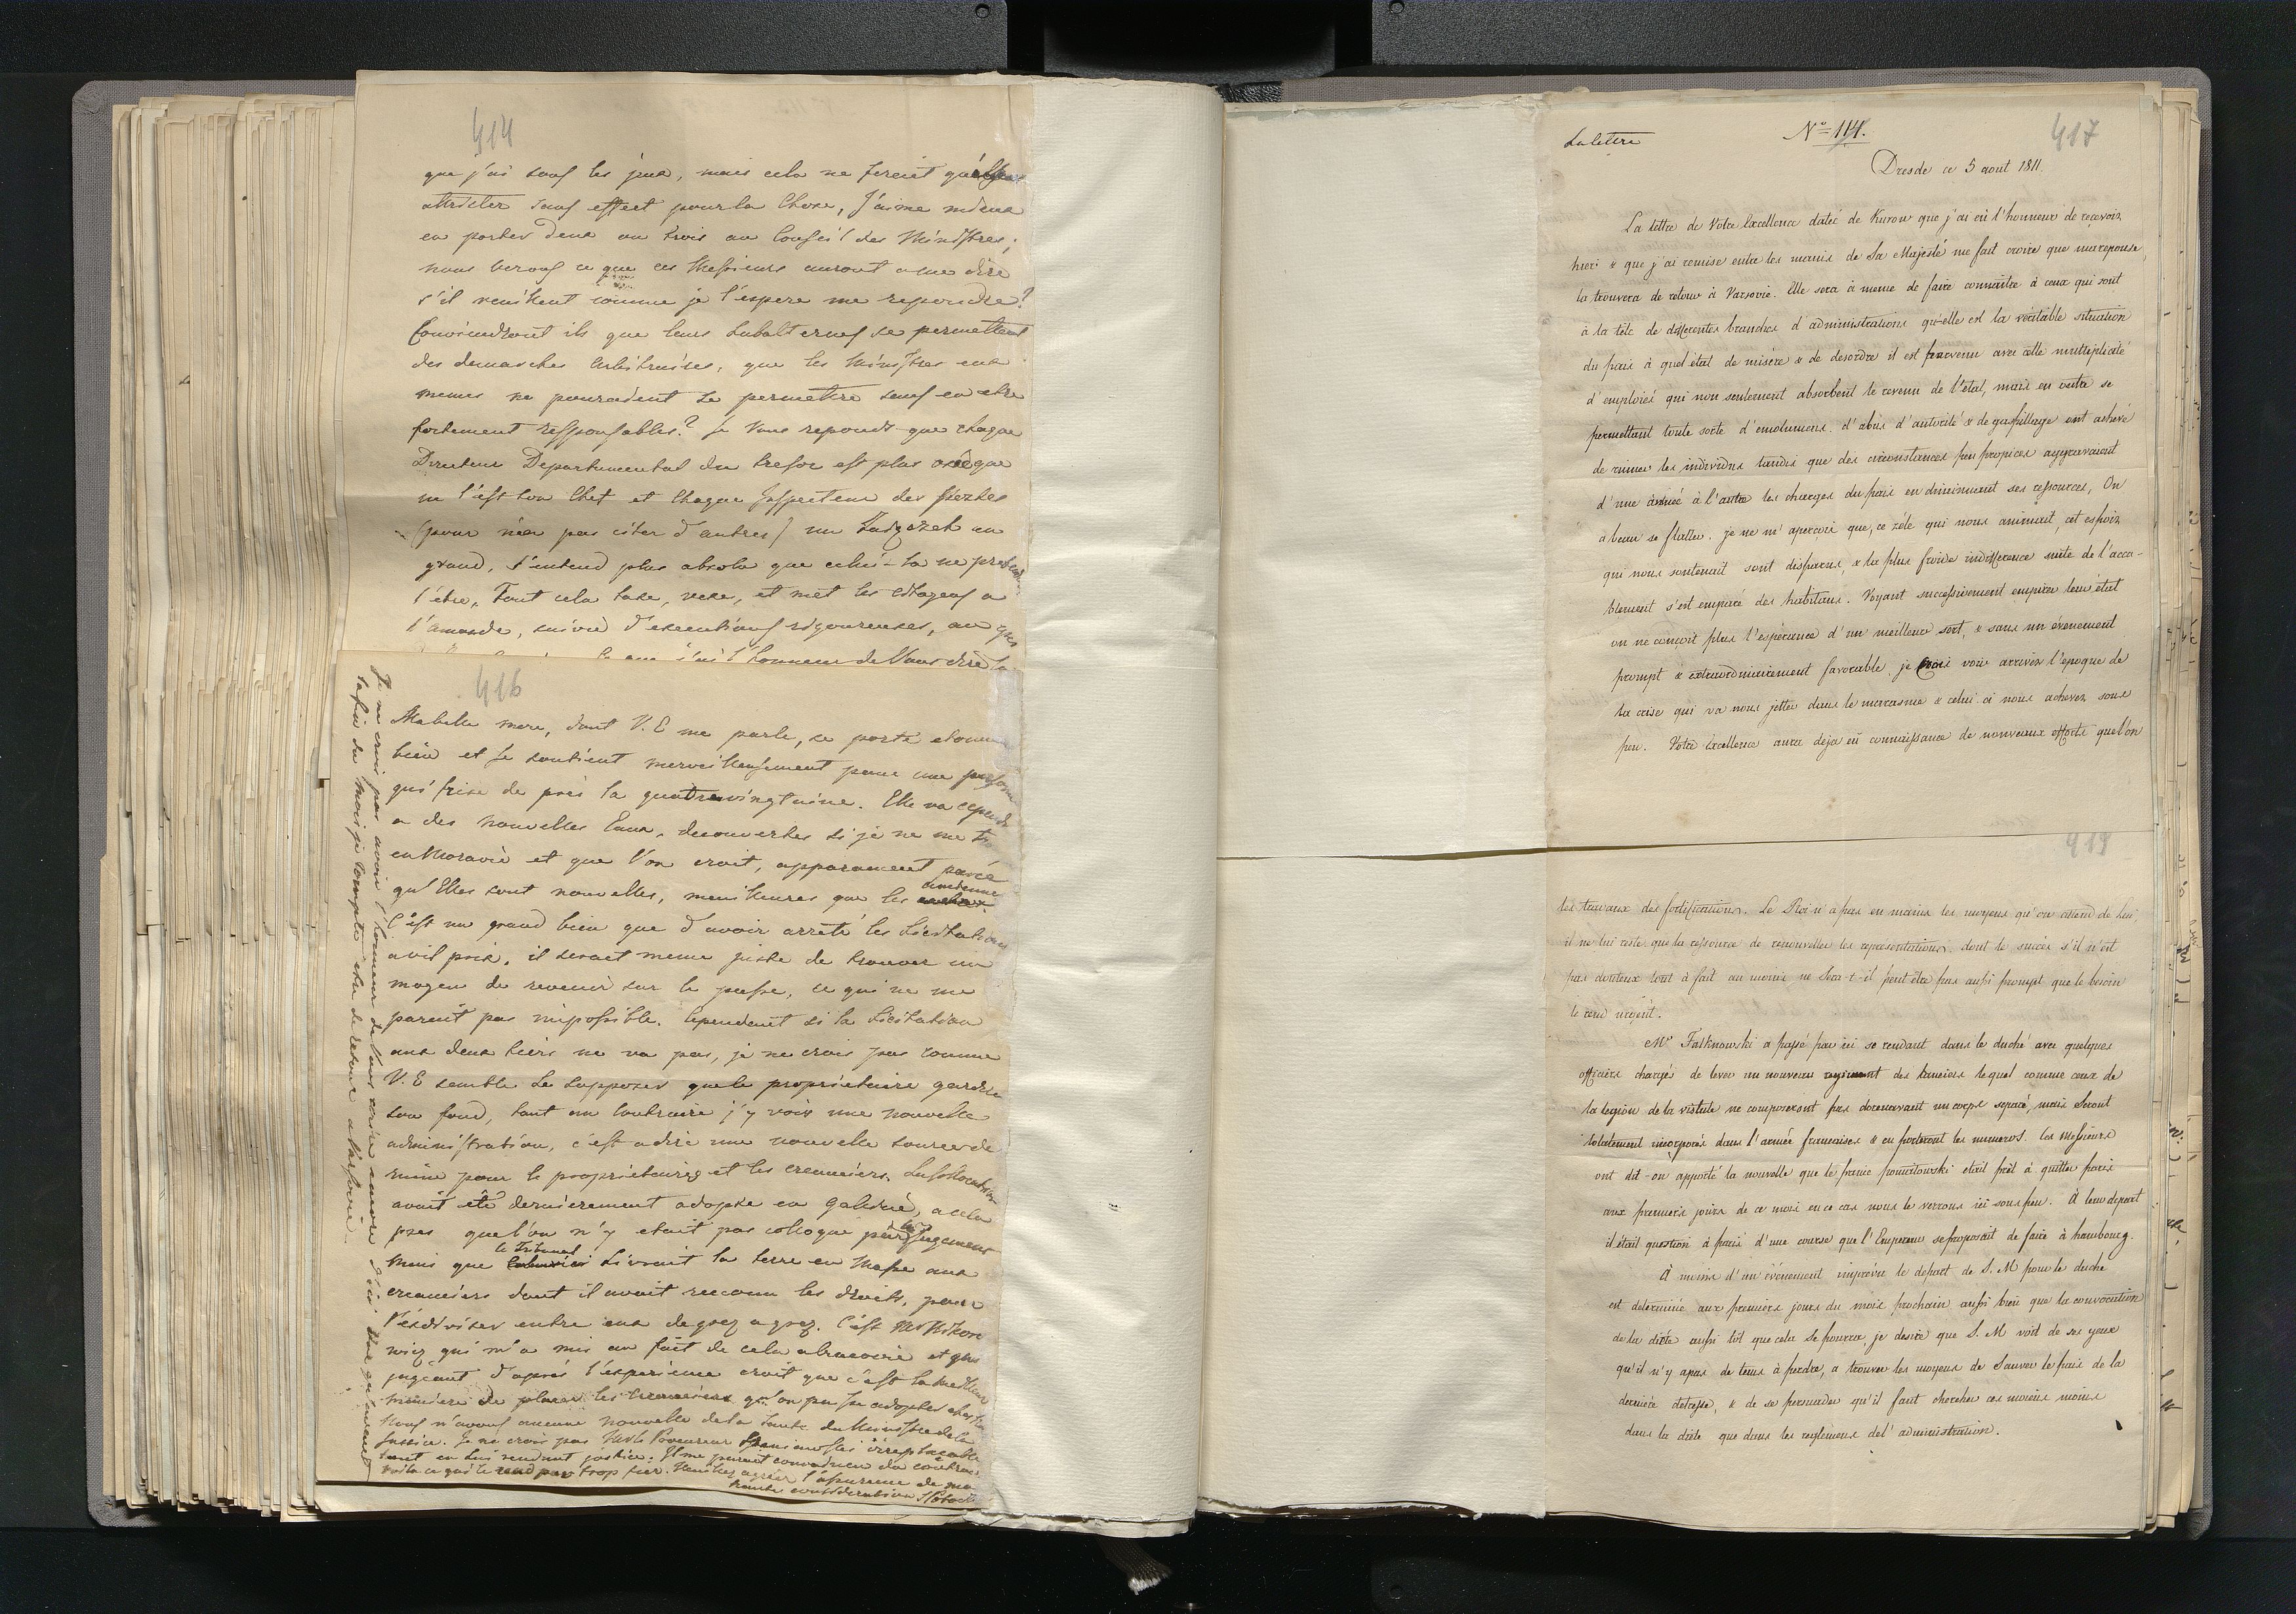 414
que j'ai sous les jeux, mais cela ne feroit que
attrister sans effect pour la chose, J'aime mieux
en porter deux ou trois au Conseil des Ministres;
nous verons ce que ces Messieurs auront a me dire
s'il veuillent comme je l'espere me repondre?
Conviendront ils que leurs subalternes se permettent
des demarches arbitraires, que les Ministres eux
memes ne pouroient se permettre sans en etre
fortement responsables? Je Vous reponds que chaque
Directeur Departemental du tresor est plus osé que
ne l'est son Chef et chaque Inspecteur des
(pour n'en pas citer d'autres) un en
grand, s'entend plus absolu que celui-la ne
l'être, Tout cela taxe, vexe, et met les Citoyens a
l'amande, suivie d'executions rigoureuses, au
que j'ai l'honneur de Vous dire
416
Ma belle mere, dont V. E me parle, se porte
bien et se soutient merveilleusement pour une
qui frise de près la quatrevingtaine. Elle va
a des nouvelles Eaux, decouvertes si je ne me
en Moravie et que l'on croit, apparament parce
qu'Elles sont nouvelles, meilleures que les
anciennes
C'est un grand bien que d'avoir arrêté les licitations
a vil prix, il seroit meme juste de trouver un
moyen de revenir sur le passe, ce qui ne me
paroit pas impossible. Cependant si la licitation
aux deux tiers ne va pas, je ne crois pas comme
V. E semble le supposer que le proprietaire gardera
son fond, tout au contraire j'y vois une nouvelle
administration, c'est a dire une nouvelle source de
ruine pour le proprietaire et les creanciers.
avoit été dernierement adoptée en Galicie, a cela
pres que l'on n'y etoit pas colloqué par jugement
le Tribunal
mais que livroit la terre en Masse aux
creanciers dont il avoit reconu les droits, pour
diviser entre eux de grez a grez. C'est
qui m'a mis au fait de cela a Cracovie et qui
jugeant d'après l'experience croit que c'est la meilleure
maniere de placer les creanciers qu'on puisse adopter
Nous n'avons aucune nouvelle de la santé du Ministre de la
Justice. Je ne crois pas irreplacable
tout en lui rendant justice. Il me paroit convaincu du contraire
voila ce qui le rend par trop fier. Veuillez agréer l'assurance de ma
haute consideration
Je ne crois pas avoir l'honneur de Vous ecrire encore d'ici
la fin du mois je compte etre de retour a Varsovie.
417
La lettre
No 114.
Dresde ce 5 aout 1811.
La lettre de Votre Excellence datée de Kurow que j'ai eû l'honneur de reçevoir
hier & que j'ai remise entre les mains de Sa Majesté me fait croire que ma reponse
la trouvera de retour à Varsovie. Elle sera à meme de faire connaitre à ceux qui sont
à la tête de differentes branches d'administrations qu'elle est la véritable situation
du païs à quel état de misère & de desordre il est parvenu avec cette multiplicité
d'emploiés qui non seulement absorbent le revenu de l'état, mais en outre se
permettant toute sorte d'emolumens. d'abus d'autorité & de gaspillage ont achevé
de ruiner les individus tandis que des circonstances peu propices aggravaient
d'une année à l'autre les charges du païs en diminuant ses ressources, On
a beau se flatter. je ne m'aperçois que, ce zèle qui nous animait, cet espoir
qui nous soutenait sont disparus, & la plus froide indifference suite de l'acca-
blement s'est emparé des habitans. Voyant successivement empirer leur état
on ne conçoit plus l'espérance d'un meilleur sort, & sans un événement
prompt & extraordinairement favorable, je crois voir arriver l'epoque de
la crise qui va nous jetter dans le marasme & celui ci nous achever sous
peu. Votre Excellence aura deja eû connaissance de nouveaux efforts que l'on
419
les travaux des fortifications. Le Roi n'a pas en mains les moyens qu'on attend de lui,
il ne lui reste que la ressource de renouveller les representations dont le succès s'il n'est
pas douteux tout à fait au moins ne sera-t-il peut être pas aussi prompt que le besoin
le rend urgent.
Mr Falknowski a passé par ici se rendant dans le duché avec quelques
officiers chargés de lever un nouveau regiment des lanciers lequel comme ceux de
la legion de la vistule ne composeront pas dorenavant un corps separé, mais seront
totalement incorporés dans l'armée françaises & en porteront les numeros. Ces Messieurs
ont dit-on apporté la nouvelle que le prince poniatowski etait prêt à quitter paris
aux premiers jours de ce mois en ce cas nous le verrons ici sous peu. À leur depart
il était question à paris d'une course que l'Empereur se proposait de faire à hambourg.
À moins d'un événement imprévu le depart de S. M pour le duché
est determiné aux premiers jours du mois prochain aussi bien que la convocation
de la diète aussi tôt que cela se pourra, je desire que S. M voit de ses yeux
qu'il n'y a pas de tems à perdre, a trouver les moyens de sauver le païs de la
derniere detresse, & de se persuader qu'il faut chercher ces moïens moins
dans la diete que dans les reglemens de l'administration.